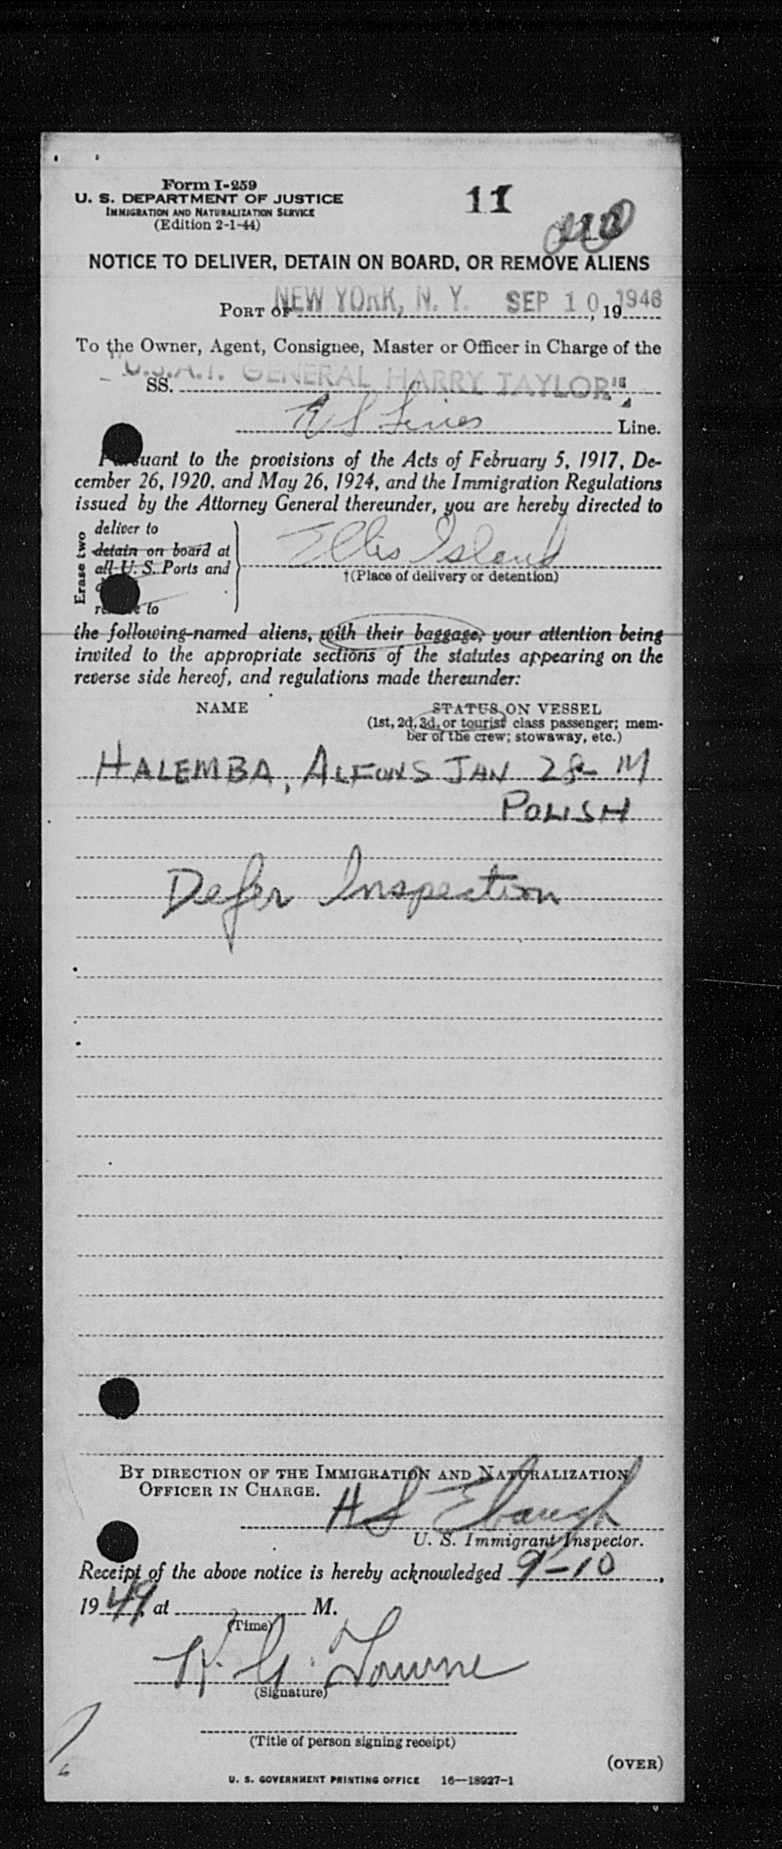 Form I-259
U. S. DEPARTMENT OF JUSTICE
IMMIGRATION AND NATURALIZATION SERVICE
(Edition 2-1-44)
11
NOTICE TO DELIVER, DETAIN ON BOARD, OR REMOVE ALIENS
PORT OF NEW YORK, N. Y. SEP 10 1948, 19
To the Owner, Agent, Consignee, Master or Officer in Charge of the
SS. U.S.A.T. GENERAL HARRY TAYLOR
Lines Line.
Pursuant to the provisions of the Acts of February 5, 1917, De-
cember 26, 1920, and May 26, 1924, and the Immigration Regulations
issued by the Attorney General thereunder, you are hereby directed to
Erase two
deliver to
detain on board at
all U. S. Ports and
to
Ellis Island
†(Place of delivery or detention)
the following-named aliens, with their baggage, your attention being
invited to the appropriate sections of the statutes appearing on the
reverse side hereof, and regulations made thereunder:
NAME
STATUS ON VESSEL
(1st, 2d, 3d, or tourist class passenger; mem-
ber of the crew; stowaway, etc.)
HALEMBA, ALFONS JAN 28 M
POLISH
Defer Inspection
BY DIRECTION OF THE IMMIGRATION AND NATURALIZATION
OFFICER IN CHARGE.
H S Ebaugh
U. S. Immigrant Inspector.
Receipt of the above notice is hereby acknowledged 9-10,
1949, at M.
(Time)
Towne
(Signature)
(Title of person signing receipt)
(OVER)
U. S. GOVERNMENT PRINTING OFFICE 16—18927-1